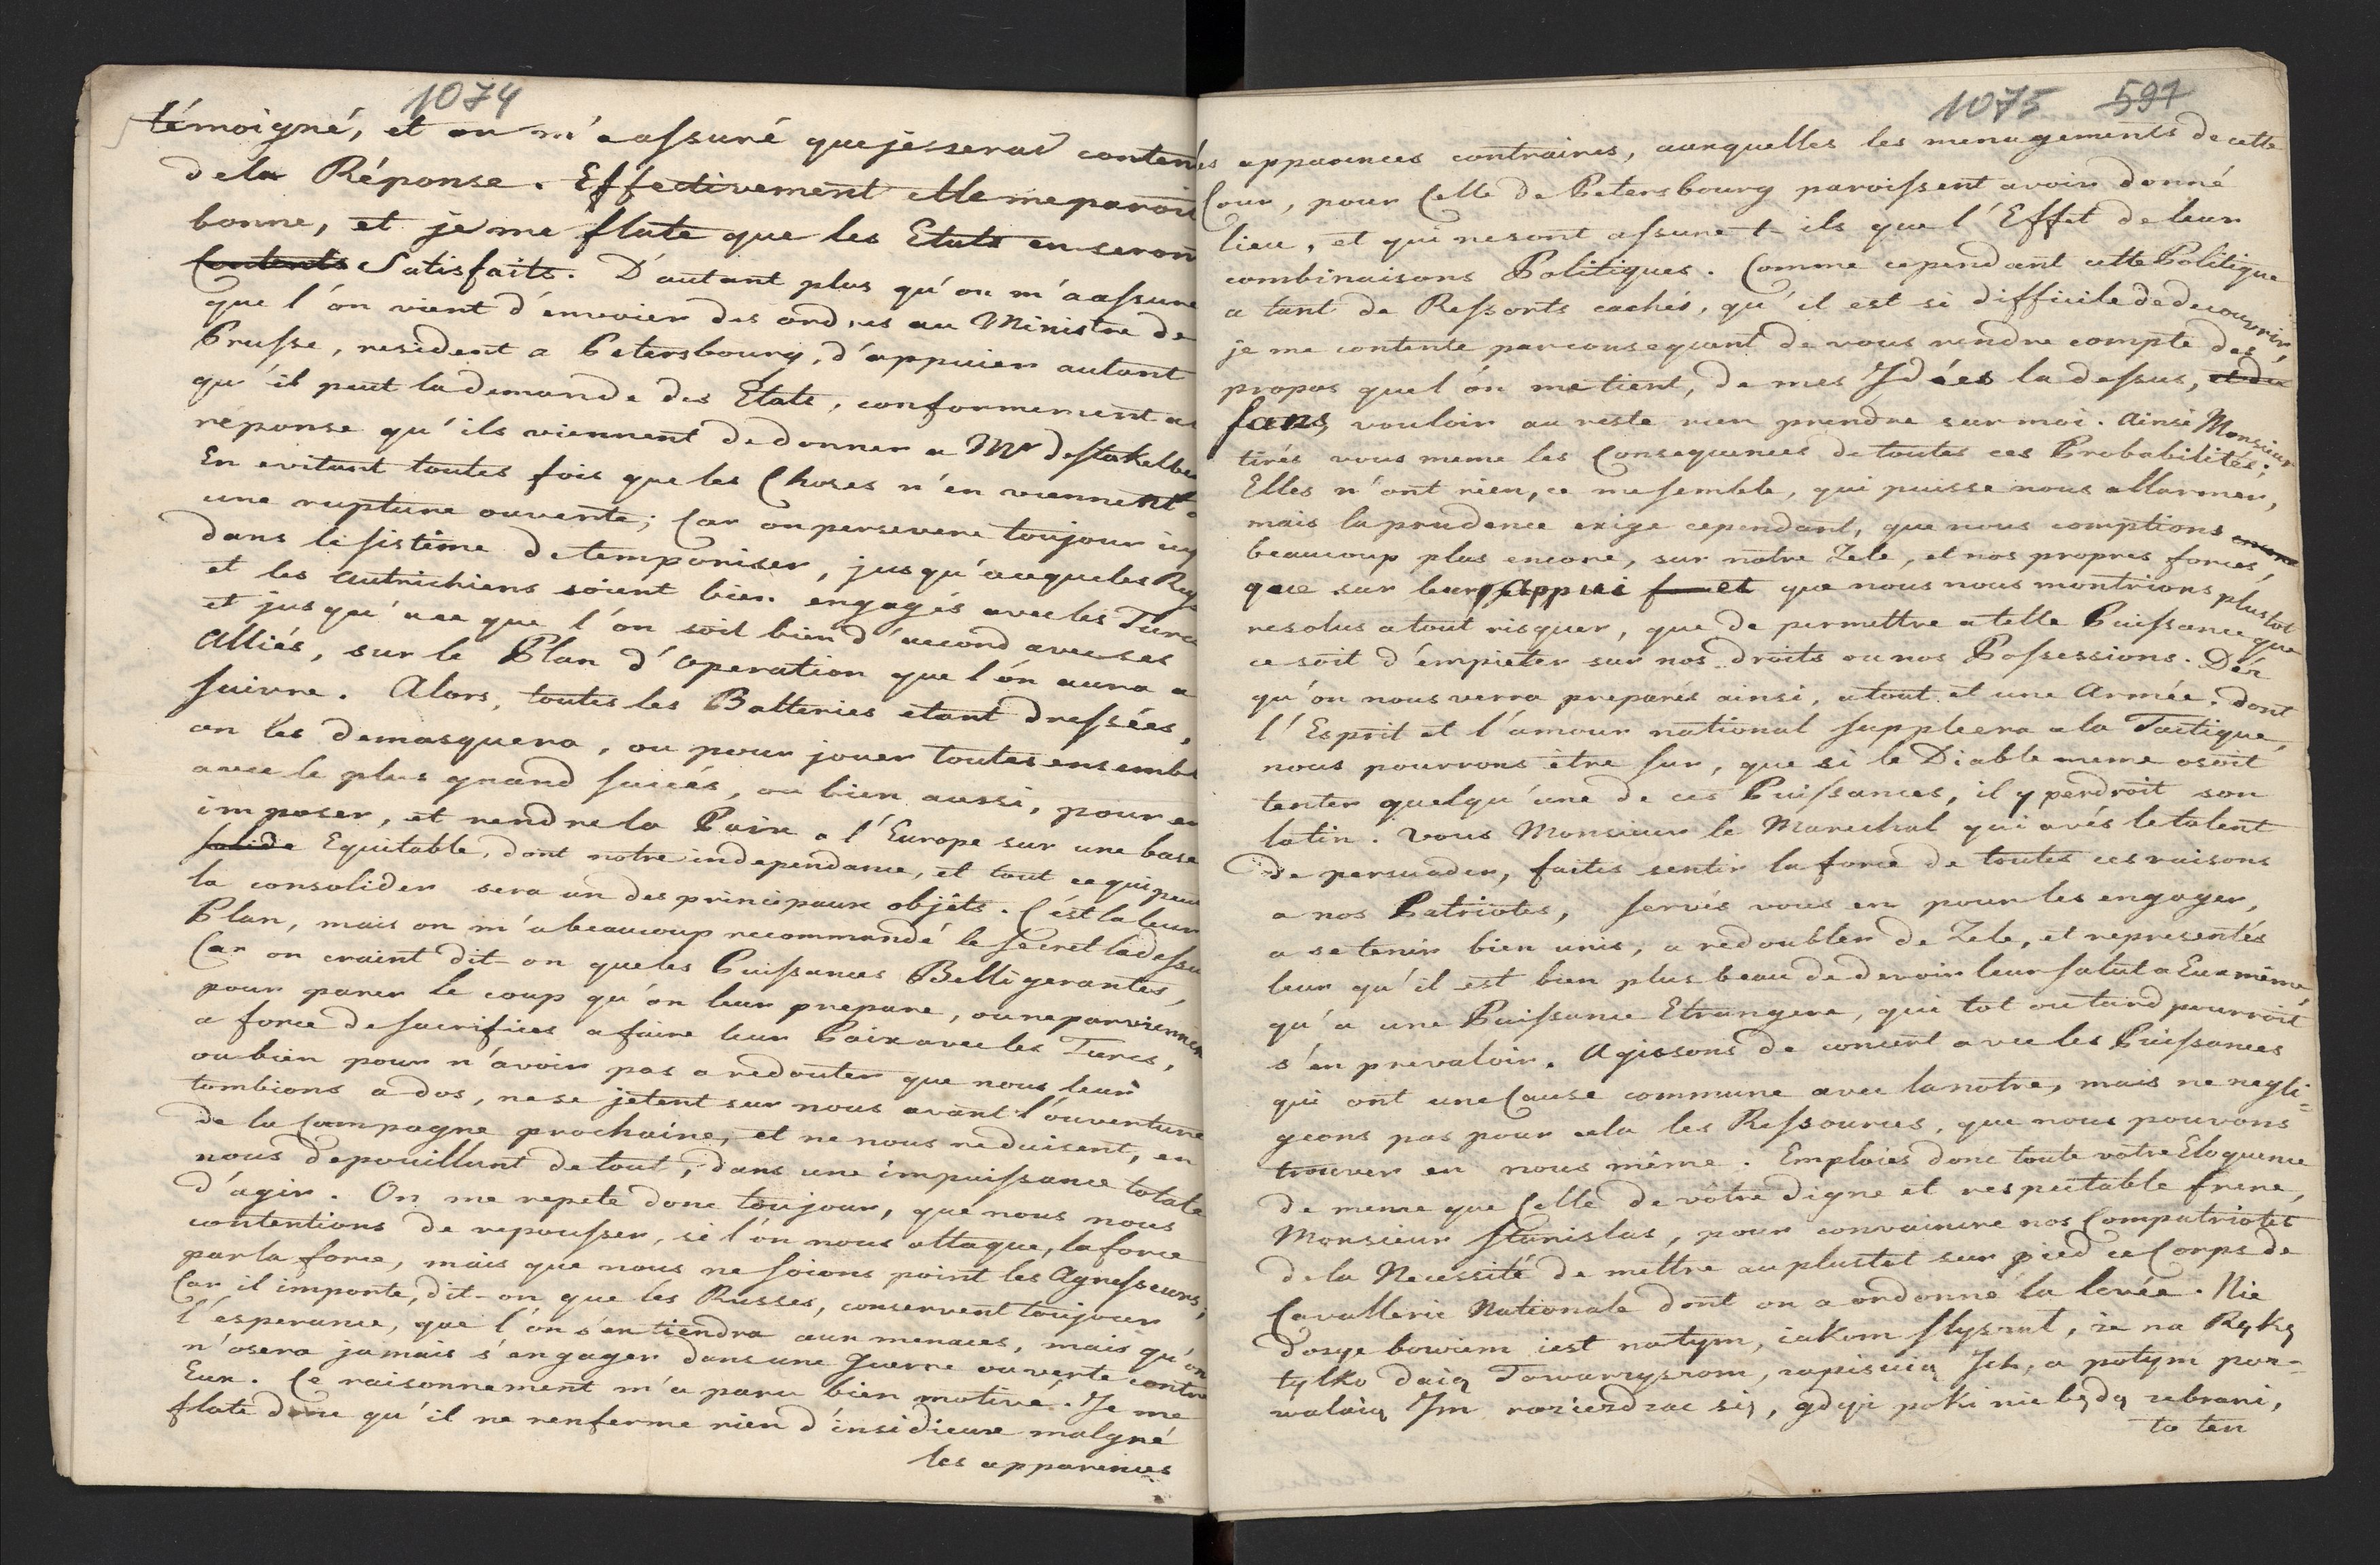 1074
témoigné, et on m'a assuré que je serai conten
de la Réponse. Effectivement elle me paroit
bonne, et je me flate que les Etats en seron
Contents Satisfaits. D'autant plus qu'on m'a assuré
que l'ón vient d'énvoier des ordres au Ministre de
Prusse, resident a Petersbourg, d'appuier autant
qu'il peut la demande des Etats, conformement a
réponse qu'ils viennent de donner a Mr de Stakelbe
En evitant toutes fois que les Choses n'én viennent a
une rupture ouverte; Car on persevere toujour icy
dans le sistême de temporiser, jusqu'a ce que les Rus
et les autrichiens soient bien engagés avec les Turcs
et jusqu'a ce que l'ón soit bien d'accord avec ses
Alliés, sur le Plan d'operation que l'ón aura a
suivre. Alors, toutes les Batteries etant dressées,
on les demasquera, ou pour jouer toutes ensemble
avec le plus grand succés, ou bien aussi, pour en
imposer, et rendre la Paix a l'Europe sur une base
solide Equitable, dont notre independance, et tout ce qui peut
la consolider sera un des principaux objéts. C'ést la leur
Plan, mais on m'a beaucoup recommandé le secret la dessu
Car on craint dit-on que les Puissances Belligerantes,
pour parer le coup qu'on leur prepare, ou ne parviennen
a force de sacrifices a faire leur Paix avec les Turcs,
ou bien pour n'avoir pas a redouter que nous leur
tombions a dos, ne se jetent sur nous avant l'ouverture
de la Campagne prochaine, et ne nous reduisent, en
nous depouillant de tout, dans une impuissance totale
d'agir. On me repete donc toujour, que nous nous
contentions de repousser, si l'ón nous attaque, la force
par la force, mais que nous ne soions point les Agresseurs;
Car il importe, dit-on que les Russes, conservent toujour
l'ésperance, que l'ón s'en tiendra aux menaces, mais qu'on
n'osera jamais s'éngager dans une guerre ouverte contre
Eux. Ce raisonnement m'a paru bien motivé. Je me
flate donc qu'il ne renferme rien d'insidieux malgré
les apparences
1075 591
es apparences contraires, auxquelles les menagements de cette
Cour, pour Celle de Petersbourg paroissent avoir donné
lieu, et qui ne sont assure t-ils que l'Effet de leur
combinaisons Politiques. Comme cependant cette Politique
a tant de Ressorts cachés, qu'il est si difficile de decouvrir,
je me contente par consequent de vous rendre compte des
propos que l'ón me tient, de mes Idées la dessus, et de
sans vouloir au reste rien prendre sur moi. Ainsi Monsieur
tirés vous meme les Consequences de toutes ces Probabilités;
Elles n'ont rien, ce me semble, qui puisse nous allarmer,
mais la prudence exige cependant, que nous comptions encore
beaucoup plus encore, sur notre Zele, et nos propres forces,
que sur leur Appui et que nous nous montrions plustot
resolus a tout risquer, que de permettre a telle Puissance que
ce soit d'émpieter sur nos droits ou nos Possessions. Dés
qu'on nous verra preparés ainsi, a tout et une Armée, dont
l'Esprit et l'amour national suppleera a la Tactique,
nous pourrons être sur, que si le Diable meme osoit
tenter quelqu'une de ces Puissances, il y perdroit son
latin. Vous Monsieur le Marechal qui avés le talent
de persuader, faites sentir la force de toutes ces raisons
a nos Patriotes, servés vous en pour les engager,
a se tenir bien unis, a redoubler de Zele, et representés
leur qu'il est bien plus beau de devoir leur salut a Eux même,
qu'a une Puissance Etrangere, qui tot ou tard pourroit
s'én prevaloir. Agissons de concert avec les Puissances
qui ont une Cause commune avec la notre, mais ne negli=
geons pas pour cela les Ressources, que nous pouvons
trouver en nous même. Emploiés donc toute votre Eloquence
de meme que Celle de vôtre digne et respectable frere,
Monsieur Stanislas, pour convaincre nos Compatriotes
de la Necessité de mettre au plustot sur pied ce Corps de
Cavallerie Nationale dont on a ordonné la levée. Nie
dosyc bowiem iest natym, iakom slyszal, że na Ręką
tylko daią Towarzyszom, zapisuią Ich, a potym poz=
walaią Im rozieżdzac się, gdyż poki nie będą zebrani,
to ten